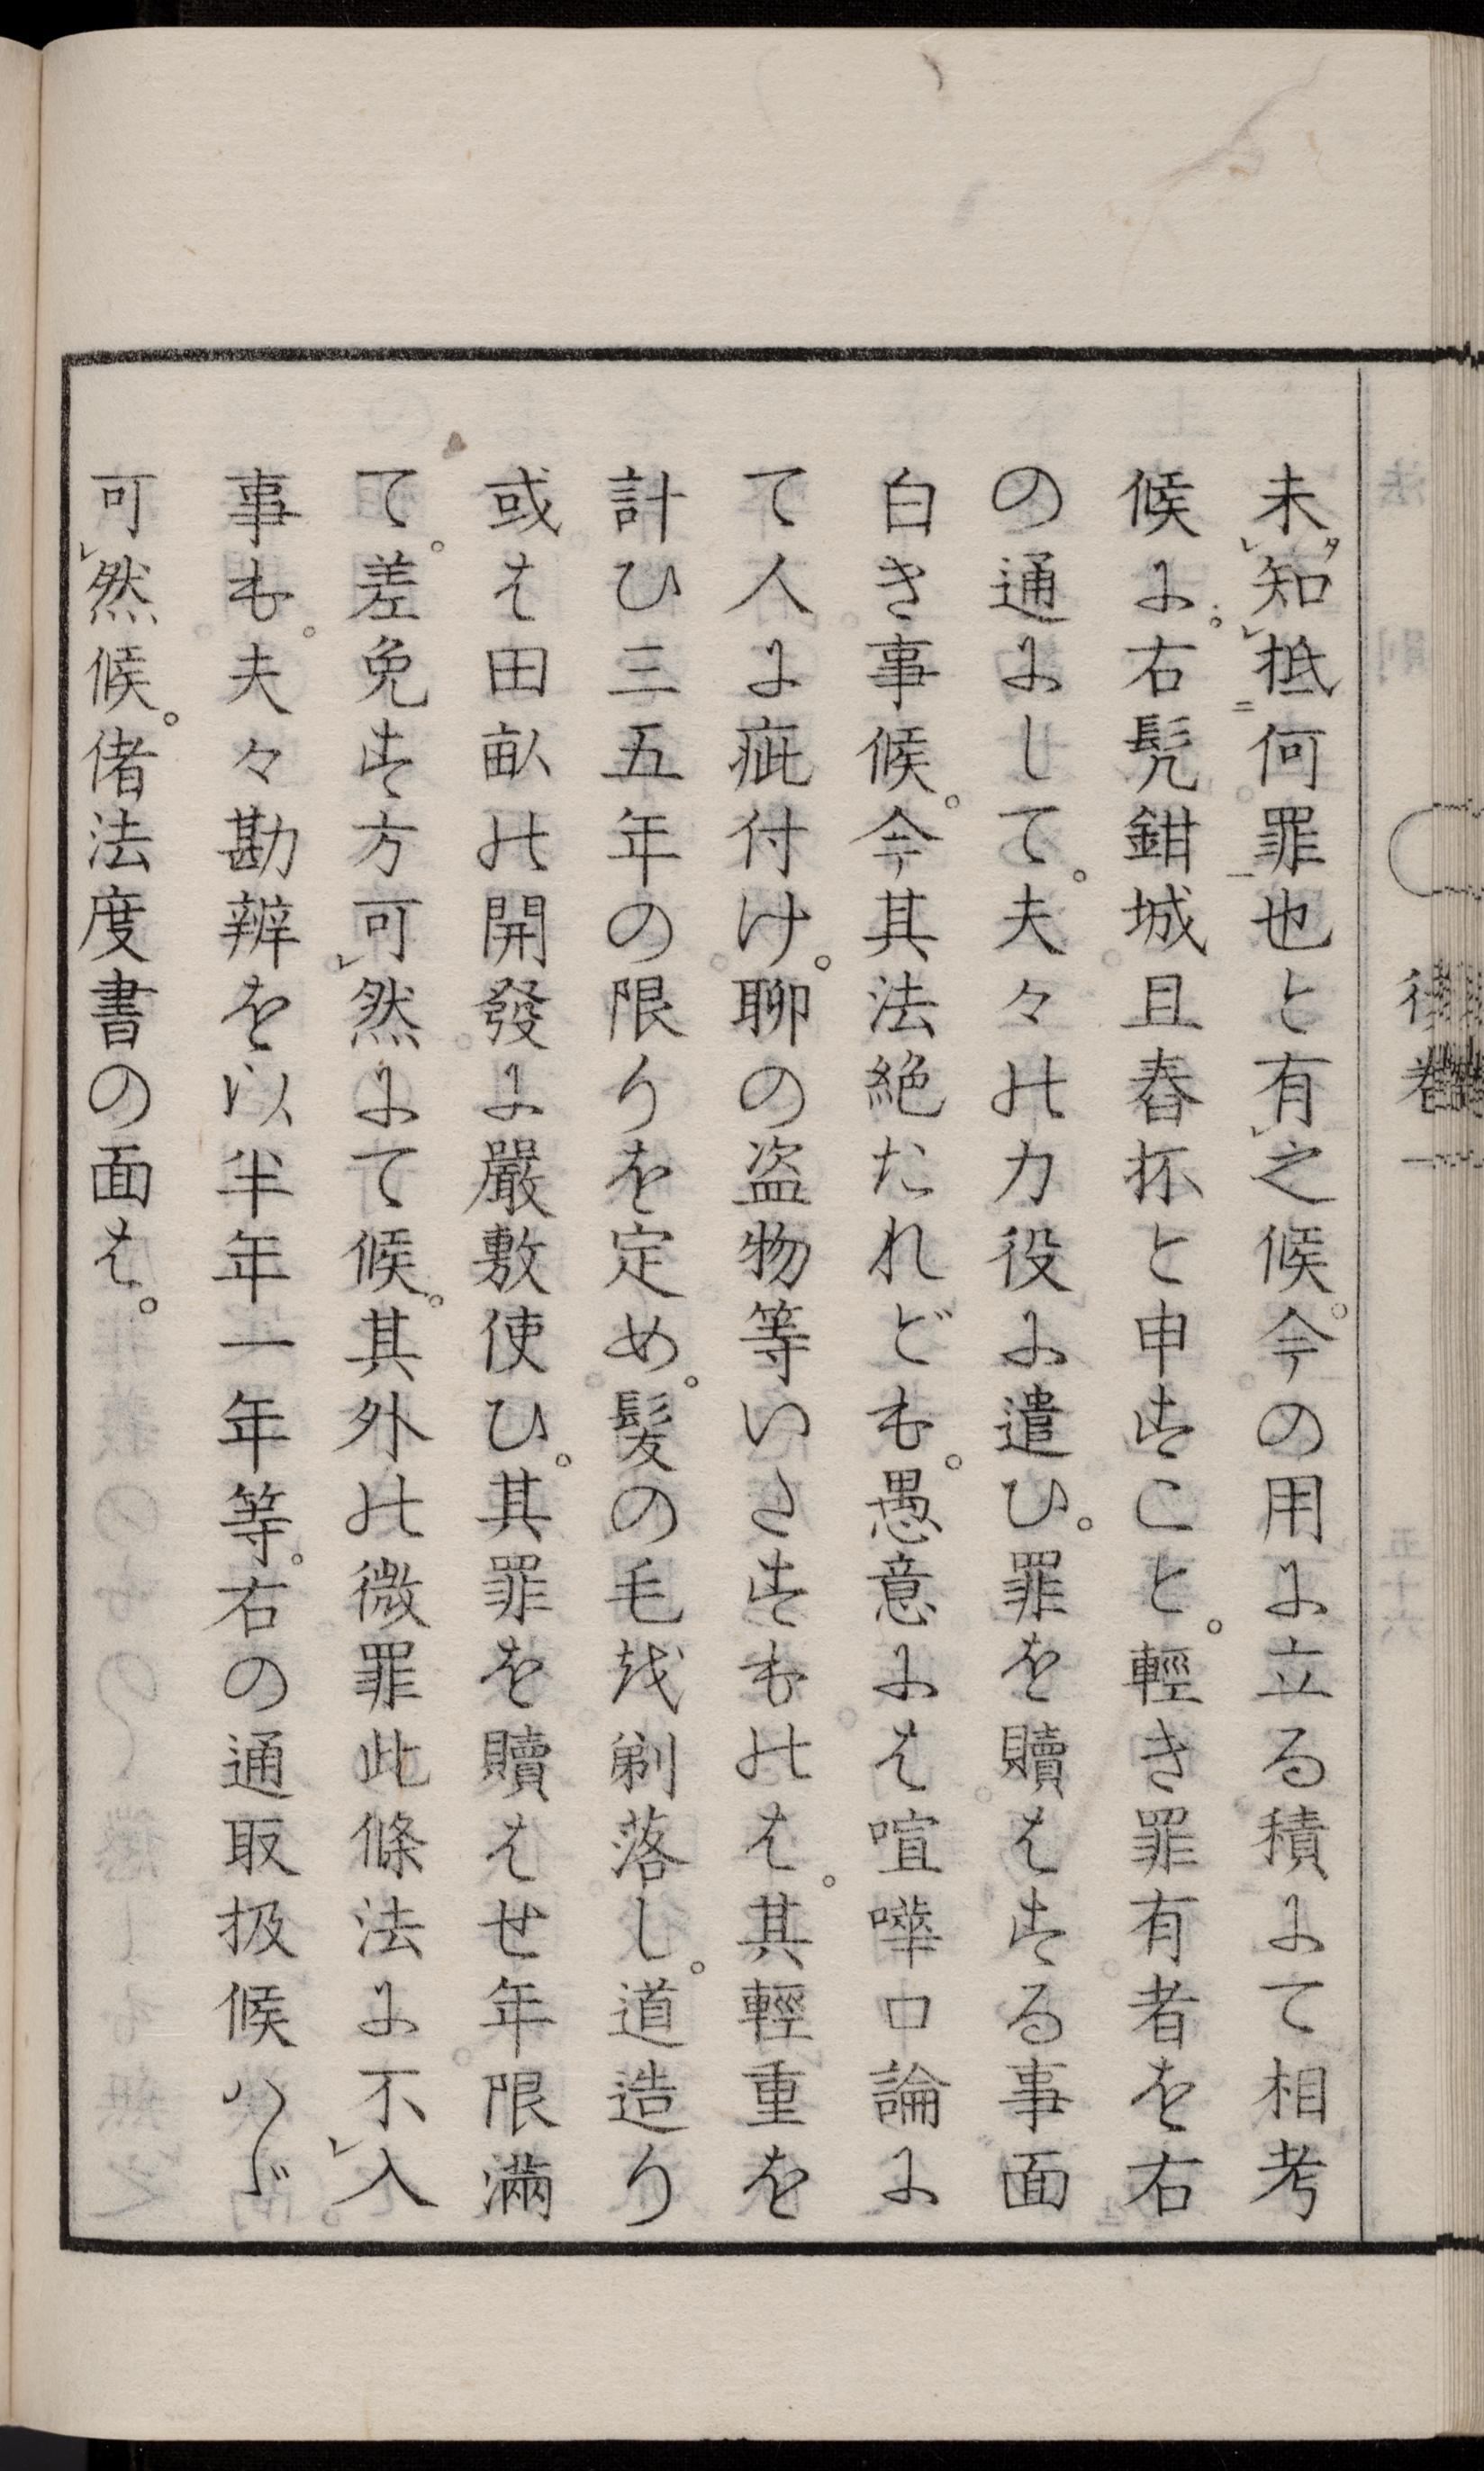 未知抵何罪也と有之候。今の用に立る積にて相考
候に。右髡鉗城且舂抔と申すこと。輕き罪有者を右
の通にして。夫々の力役に遣ひ。罪を贖はする事面
白き事候。今其法絶たれども。愚意には喧嘩口論に
て人に疵付け。聊の盗物等いたすものは。其輕重を
計ひ三五年の限りを定め。髪の毛を剃落し。道造り
或は田畝の開發に嚴敷使ひ。其罪を贖はせ年限滿
て。差免す方可然にて候。其外の微罪此條法に不入
事も。夫々勘辨を以半年一年等。右の通取扱候ハヾ
可然候。偖法度書の面は。
後巻一